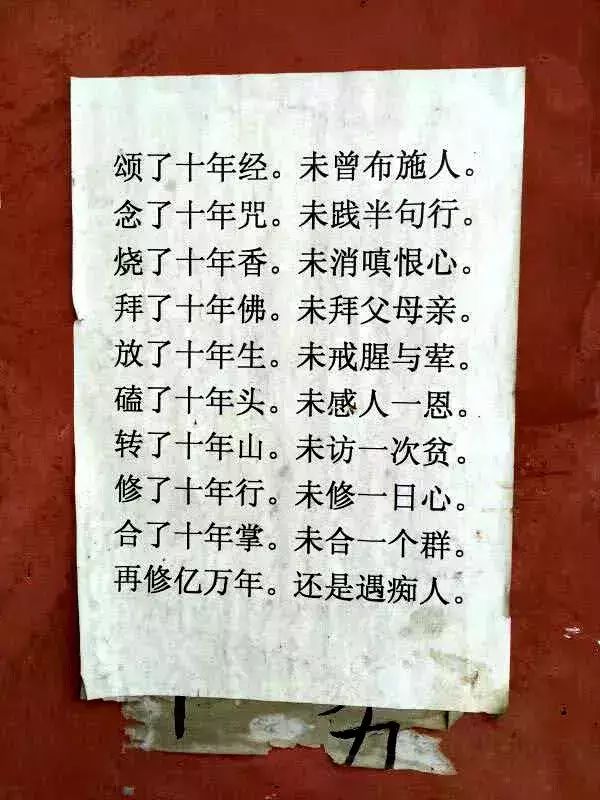 颂了十年经。未曾布施人。
念了十年咒。未践半句行。
烧了十年香。未消嗔恨心。
拜了十年佛。未拜父母亲。
放了十年生。未戒腥与荤。
磕了十年头。未感人一恩。
转了十年山。未访一次贫。
修了十年行。未修一日心。
合了十年掌。未合一个群。
再修亿万年。还是遇痴人。